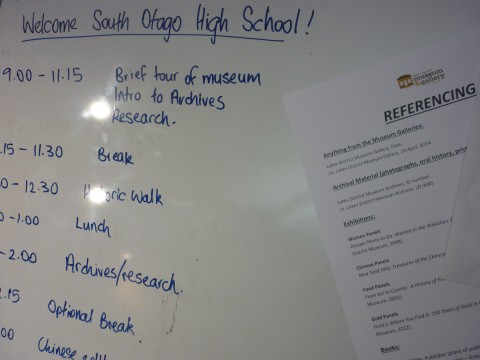 Welcome South Otago High School!
9.00 - 11.15 Brief tour of museum
Intro to Archives
Research.
.15 - 11.30 Break
0 - 12.30 Historic Walk
0 - 1.00 Lunch
- 2.00 Archives/research.
2.15 Optional Break.
.00 Chinese
museum
& gallery
REFERENCING
Anything from the Museum Galleries:
Lakes District Museum Gallery, Date.
i.e. Lakes District Museum Gallery, 19 April, 2014.
Archival Material (photographs, oral history,
Lakes District Museum Archives, ID number
i.e. Lakes District Museum Archives, LD 0083.
Exhibitions:
Women Panels
District Museum, 1998.
Chinese Panels
New Gold Hills: Treasures of the Chinese
Food Panels
From to Cuisine: A History of
Museum, 2000.
Gold Panels
Gold is Where You Find It: 150 Years of Gold in
Museum, 2012.
Books: